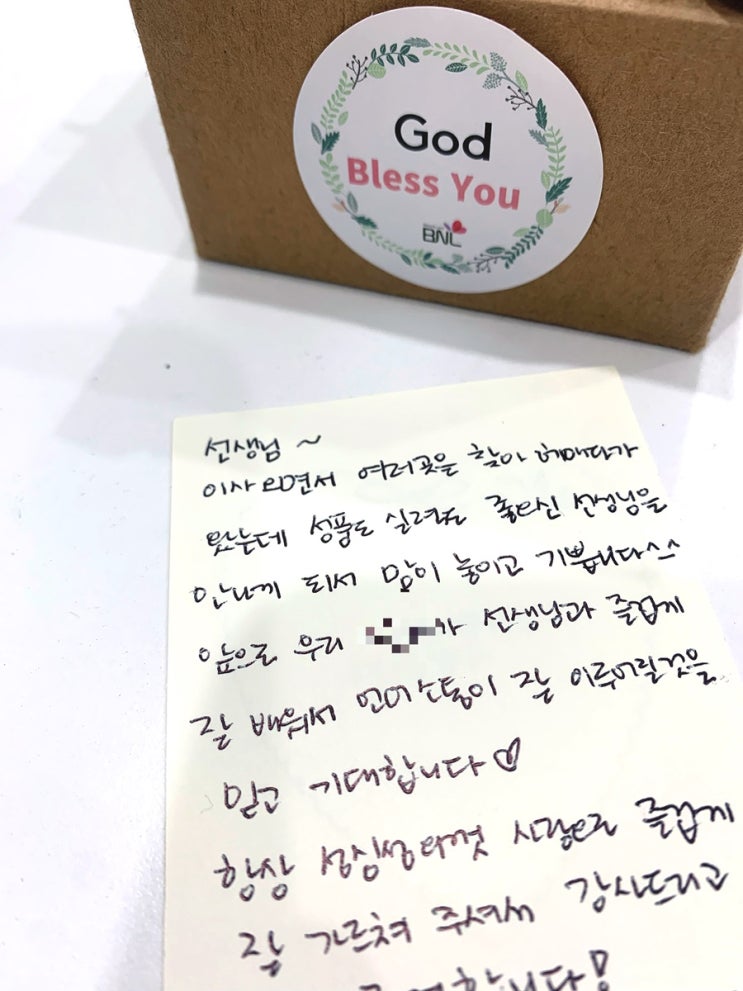 God
Bless You
BNL
선생님 ~
이사오면서 여러곳을 찾아 헤매다가
왔는데 성품도 실력도 좋으신 선생님을
만나게 되서 맘이 놓이고 기쁩니다
앞으로 우리 가 선생님과 즐겁게
잘 배워서 언어소통이 잘 이루어질것을
믿고 기대합니다♡
항상 성심성의껏 사랑으로 즐겁게
잘 가르쳐 주셔서 감사드리고